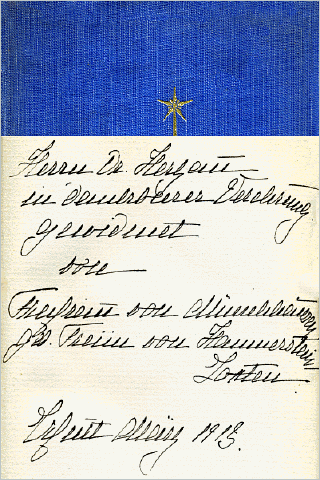 Herrn Dr. Hergan
in dankbarer Verehrung
gewidmet
von
Freifrau von Münchhausen
geb. Freiin von Hammerstein
Loxten.
Erfurt März 1913.